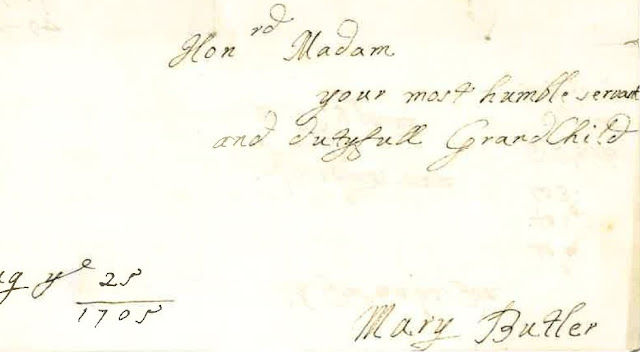 Hon rd Madam
your most humble servant
and dutyfull GrandChild
ug ye 25
1705
Mary Butler